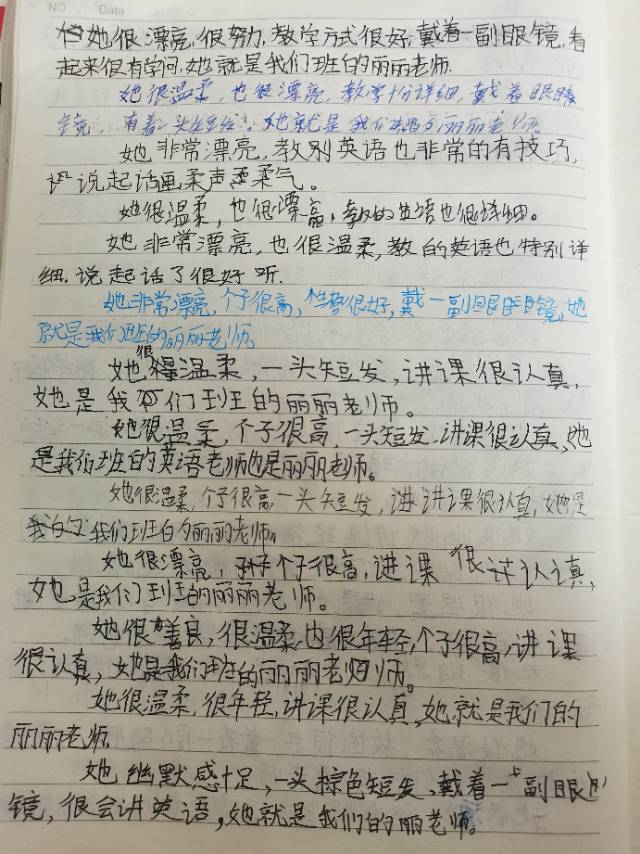 NO Date
她很漂亮,很努力,教学方式很好,戴着一副眼镜,看
起来很有学问,她就是我们班的丽丽老师.
她很温柔,也很漂亮,教学十分详细,戴着眼睛
镜,有着一头短发。她就是我们班的丽丽老师。
她非常漂亮,教别英语也非常的有技巧,
说起话画柔声柔气。
她很温柔,也很漂亮,教的英语也很详细。
她非常漂亮,也很温柔,教的英语也特别详
细.说起话了很好听.
她非常漂亮,个子很高,性格很好,戴一副眼睛镜,她
就是我们班的丽丽老师。
她很温柔,一头短发,讲课很认真,
她是我们班的丽丽老师。
她很温柔,个子很高,一头短发,讲课很认真,她
是我们班的英语老师也是丽丽老师。
她很温柔,个子很高,一头短发,讲讲课很认真,她是
我们班的丽丽老师。
她很漂亮,个子很高,讲课很认真,
她是我们班的丽丽老师。
她很善良,很温柔,也很年轻,个子很高,讲课
很认真,她是我们班的丽丽老师。
她很温柔,很年轻,讲课很认真,她就是我们的
丽丽老师.
她幽默感十足,一头棕色短发,戴着一副眼
镜,很会讲英语,她就是我们的丽老师。